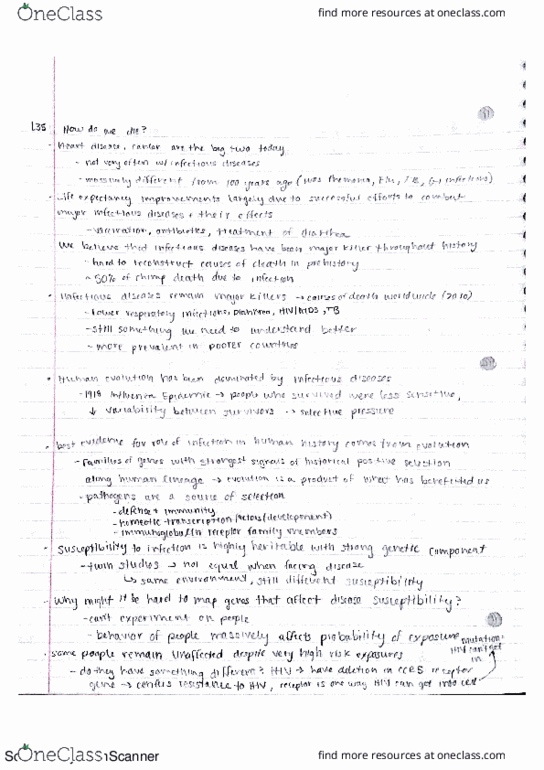 OneClass
find more resources at oneclass.com
L35 How do we die?
- Heart disease, cancer are the big two today
- not very often w/ infectious diseases
- massively different from 100 years ago (was Pneumonia, Flu, TB, G-I infections)
- Life expectancy improvements largely due to successful efforts to combat
major infectious diseases + their effects
- vaccination, antibiotics, treatment of diarrhea
We believe that infectious diseases have been major killer throughout history
- hard to reconstruct causes of death in prehistory
~ 50% of chimp death due to infection
• Infectious diseases remain major killers → causes of death worldwide (2010)
- Lower respiratory infections, Diahrrea, HIV/AIDS, TB
- still something we need to understand better
- more prevalent in poorer countries
• Human evolution has been dominated by infectious diseases
- 1918 Influenza Epidemic → people who survived were less sensitive,
↓ variability between survivors → selective pressure
- best evidence for role of infection in human history comes from evolution
- Families of genes with strongest signals of historical positive selection
along human lineage → evolution is a product of what has benefited us
- pathogens are a source of selection
- defense + immunity
- homeotic transcription factors (development)
- immunoglobulin receptor family members
• susceptibility to infection is highly heritable with strong genetic component
- twin studies → not equal when facing disease
↳ same environment, still different susceptibility
- Why might it be hard to map genes that affect disease susceptibility?
- can't experiment on people
- behavior of people massively affects probability of exposure
mutation:
HIV can't get
in
• some people remain unaffected despite very high risk exposures
- do they have something different? HIV → have deletion in CCR5 receptor
gene → confers resistance to HIV, receptor is one way HIV can get into cell
OneClass
Scanner
find more resources at oneclass.com